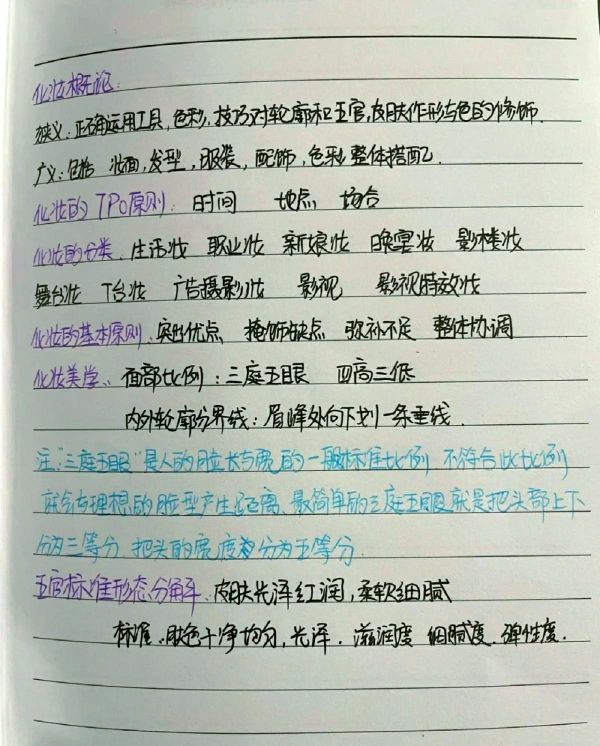 化妆概论:
狭义:正确运用工具,色彩,技巧对轮廓和五官,皮肤作形与色的修饰.
广义:包括 妆面,发型,服装,配饰,色彩整体搭配.
化妆的TPO原则: 时间 地点 场合
化妆的分类. 生活妆 职业妆 新娘妆 晚宴妆 影楼妆
舞台妆 T台妆 广告摄影妆 影视 影视特效妆
化妆的基本原则. 突出优点 掩饰缺点 弥补不足 整体协调
化妆美学:. 面部比例:三庭五眼 四高三低
内外轮廓分界线:眉峰处向下划一条垂线.
注:"三庭五眼"是人的脸长与宽的一般标准比例 不符合此比例
就会与理想的脸型产生距离、最简单的三庭五眼就是把头部上下
分为三等分. 把头的宽度分为五等分.
五官标准形态分解. 皮肤光泽红润,柔软细腻
标准.肤色干净均匀,光泽. 滋润度 细腻度. 弹性度.